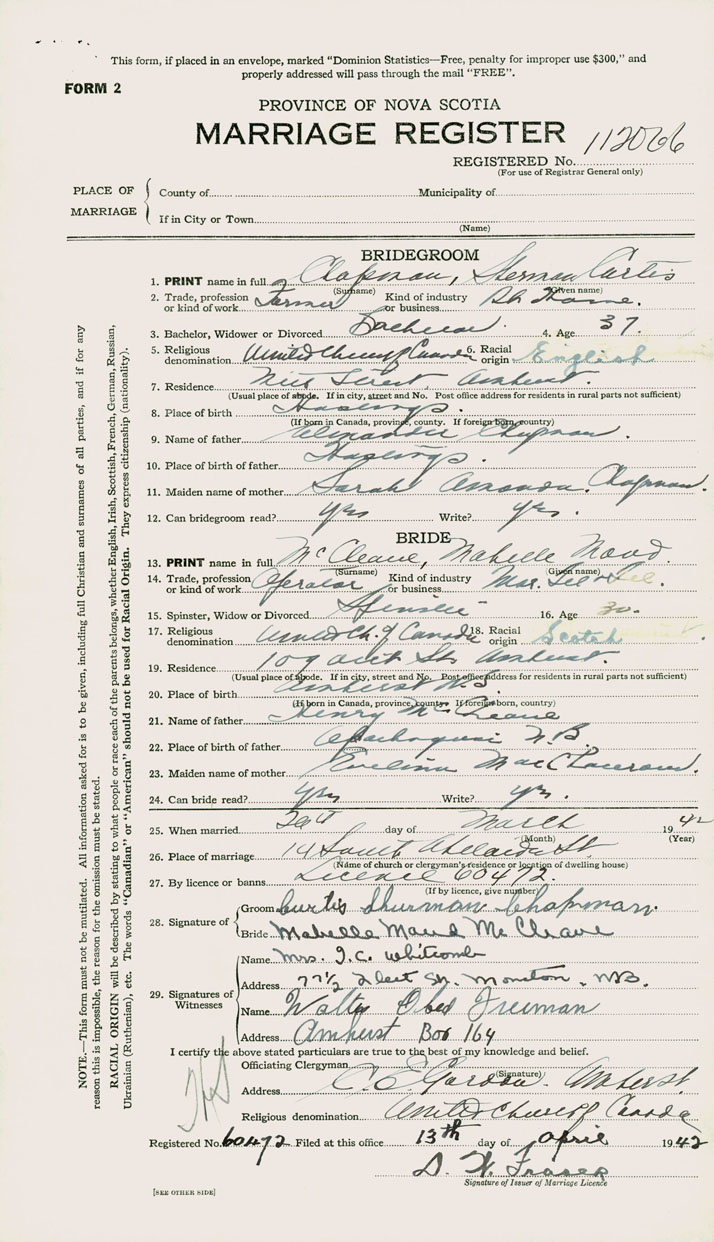 This form, if placed in an envelope, marked "Dominion Statistics—Free, penalty for improper use $300," and
properly addressed will pass through the mail "FREE".
FORM 2
PROVINCE OF NOVA SCOTIA
MARRIAGE REGISTER 112066
REGISTERED No.
(For use of Registrar General only)
PLACE OF MARRIAGE
County of Municipality of
If in City or Town
(Name)
BRIDEGROOM
1. PRINT name in full Chapman, Sherman Curtis
(Surname) (Given name)
2. Trade, profession or kind of work Farmer Kind of industry or business At Home.
3. Bachelor, Widower or Divorced Bachelor. 4. Age 37.
5. Religious denomination United Church of Canada 6. Racial origin English
7. Residence Street, Amherst.
(Usual place of abode. If in city, street and No. Post office address for residents in rural parts not sufficient)
8. Place of birth Hastings.
(If born in Canada, province, county. If foreign born, country)
9. Name of father Chapman.
10. Place of birth of father Hastings.
11. Maiden name of mother Sarah Amanda Chapman.
12. Can bridegroom read? yes Write? yes.
BRIDE
13. PRINT name in full McCleave, Mabelle Maud.
(Surname) (Given name)
14. Trade, profession or kind of work Operator Kind of industry or business Mar. Tel & Tel.
15. Spinster, Widow or Divorced Spinster 16. Age 30.
17. Religious denomination United Ch. of Canada 18. Racial origin Scotch
19. Residence 109 St. Amherst.
(Usual place of abode. If in city, street and No. Post office address for residents in rural parts not sufficient)
20. Place of birth Amherst N.S.
(If born in Canada, province, county. If foreign born, country)
21. Name of father Henry McCleave
22. Place of birth of father Apohaqui N.B.
23. Maiden name of mother Evelina
24. Can bride read? yes Write? yes.
25. When married day of March 1942
(Month) (Year)
26. Place of marriage 19 South Adelaide St.
(Name of church or clergyman's residence or location of dwelling house)
27. By licence or banns Licence 60472.
(If by licence, give number)
28. Signature of
Groom Curtis Shurman Chapman.
Bride Mabelle Maud McCleave
29. Signatures of Witnesses
Name Mrs. J.C. Whitcomb
Address 77½ St. Moncton, N.B.
Name Walter Obed Freeman
Address Amherst Box 164
I certify the above stated particulars are true to the best of my knowledge and belief.
Officiating Clergyman
(Signature)
Address C. E. Gordon. Amherst.
Religious denomination United Church of Canada
Registered No. 60472 Filed at this office 13th day of April 1942
D. W. Fraser
Signature of Issuer of Marriage Licence
[SEE OTHER SIDE]
NOTE.—This form must not be mutilated. All information asked for is to be given, including full Christian and surnames of all parties, and if for any
reason this is impossible, the reason for the omission must be stated.
RACIAL ORIGIN will be described by stating to what people or race each of the parents belongs, whether English, Irish, Scottish, French, German, Russian,
Ukrainian (Ruthenian), etc. The words "Canadian" or "American" should not be used for Racial Origin. They express citizenship (nationality).